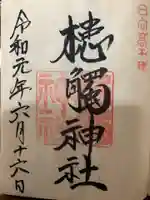 日向高千穂
槵觸神社
令和元年六月十六日